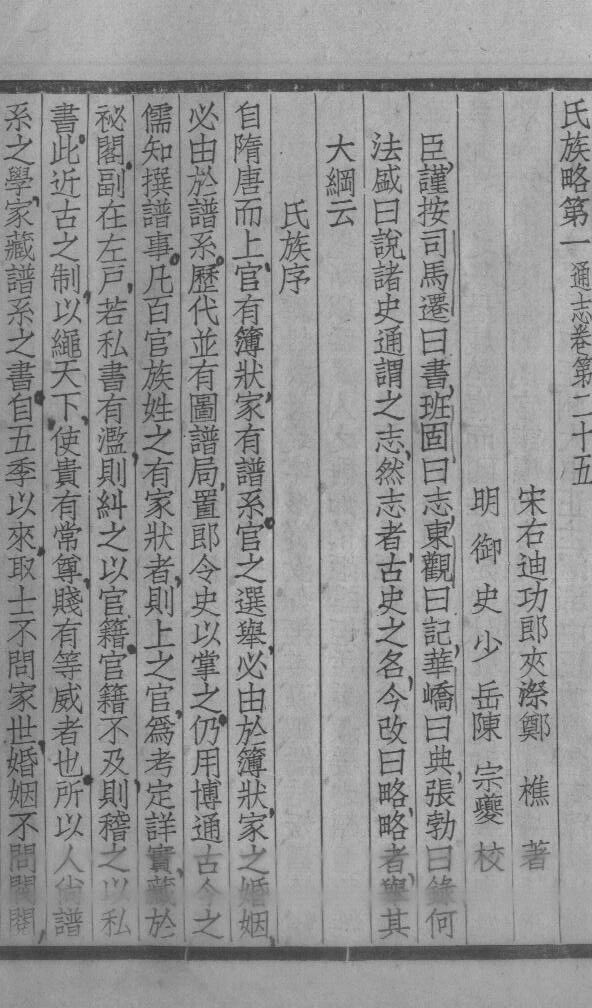 氏族略第一 通志卷第二十五
宋右迪功郎夾漈鄭樵著
明御史少岳陳宗夔校
臣謹按司馬遷曰書,班固曰志,東觀曰記,華嶠曰典,張勃曰錄,何
法盛曰說,諸史通謂之志,然志者,古史之名,今改曰略,略者,舉其
大綱云
氏族序
自隋唐而上,官有簿狀,家有譜系,官之選舉,必由於簿狀,家之婚姻,
必由於譜系,歷代並有圖譜局,置郎令史以掌之,仍用博通古今之
儒知撰譜事,凡百官族姓之有家狀者,則上之官,爲考定詳實,藏於
祕閣,副在左戶,若私書有濫,則糾之以官籍,官籍不及,則稽之以私
書,此近古之制,以繩天下,使貴有常尊,賤有等威者也,所以人尚譜
系之學,家藏譜系之書,自五季以來,取士不問家世,婚姻不問閥閱,